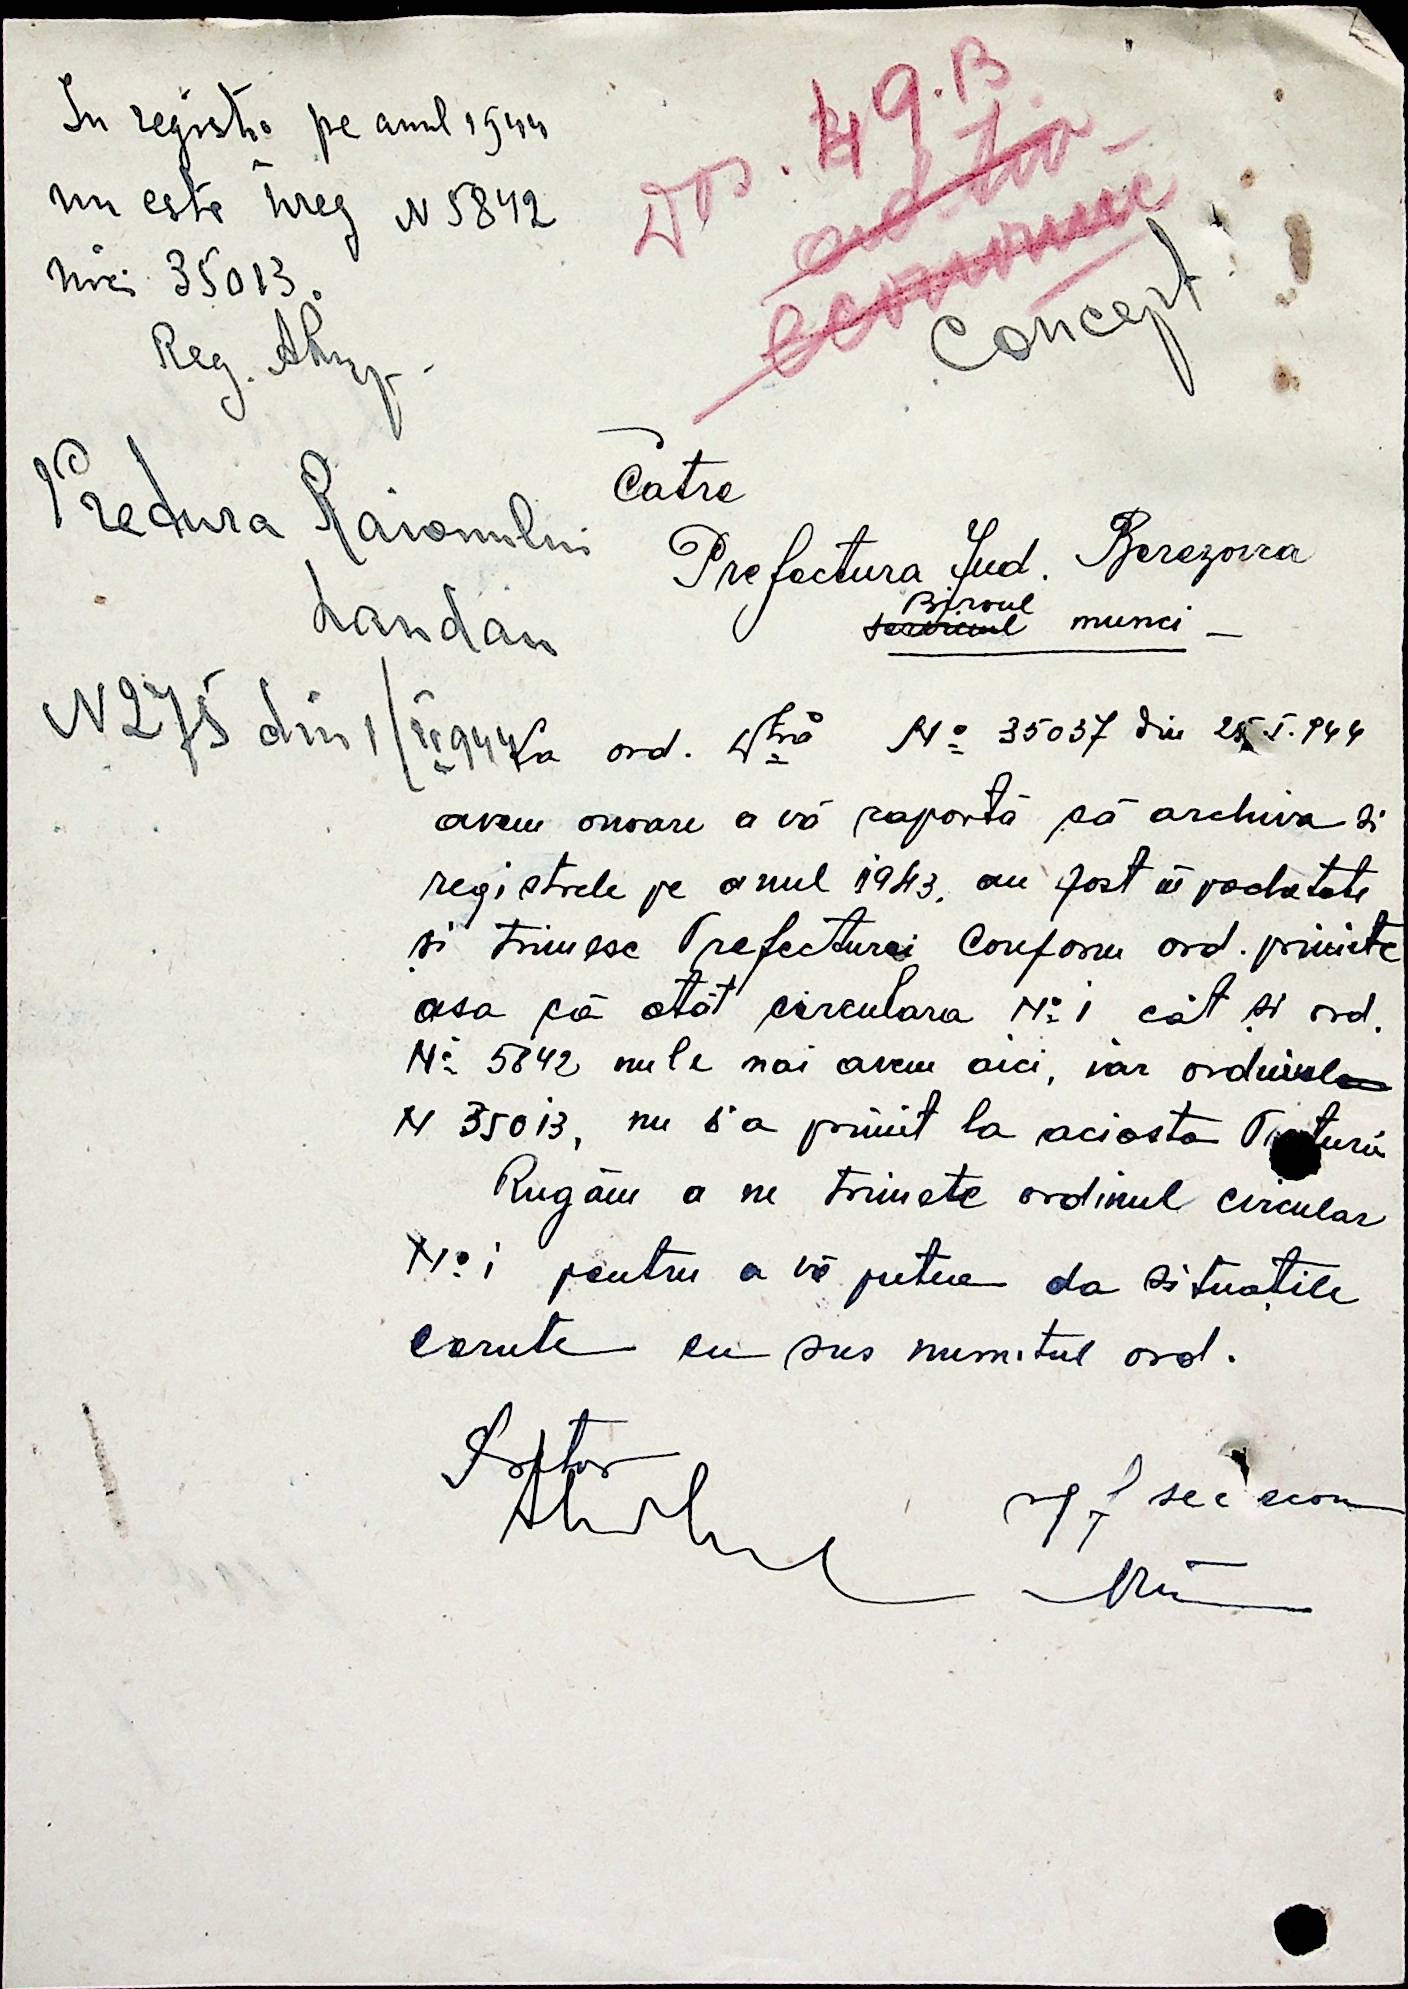 In registru pe anul 1944
nu este înreg N 5842
nici 35013.
Reg.
Dos. 49.B
economic
Concept
Pretura Raionului
Landau
N 275 din 1/II 944
Catre
Prefectura Jud. Berezovca
Biroul
serviciul munci –
La ord. Dtră No 35037 din 25.I.944
avem onoare a vă raportà că archiva si
registrele pe anul 1943, au fost îîpachetate
si trimese Prefecturei Conform ord. primite
asa că atât circulara No 1 cât și ord.
No 5842 nu le mai avem aici, iar ordinul
N 35013, nu s'a primit la aciasta Pretură
Rugăm a ne trimete ordinul circular
No 1 pentru a vă putea da situațile
cerute cu sus numitul ord.
Pretor
sef sec econ